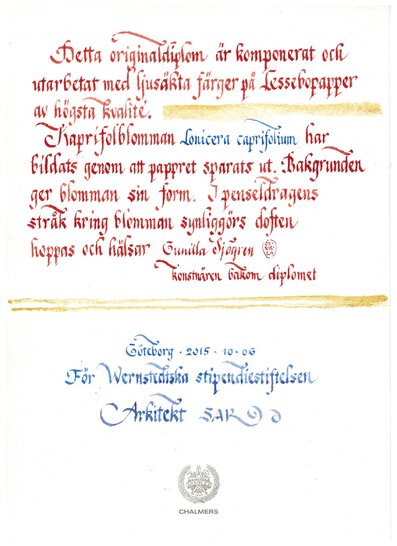 Detta originaldiplom är komponerat och
utarbetat med ljusäkta färger på Lessebopapper
av högsta kvalité.
Kaprifolblomman Lonicera caprifolium har
bildats genom att pappret sparats ut. Bakgrunden
ger blomman sin form. I penseldragens
stråk kring blomman synliggörs doften
hoppas och hälsar Gunilla Sjögren
konstnären bakom diplomet
Göteborg · 2015 · 10 · 06
För Wernstediska stipendiestiftelsen
Arkitekt SAR
CHALMERS